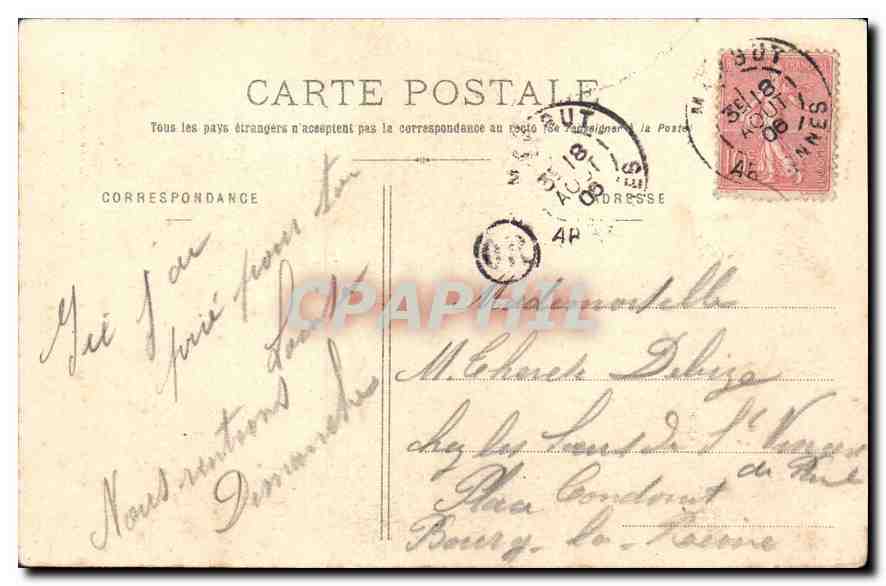 CARTE POSTALE
Tous les pays étrangers n'acceptent pas la correspondance au recto (Se renseigner à la Poste)
CORRESPONDANCE
ADRESSE
Ici j'ai
prié pour ta
Santé
Nous rentrons
Dimanche
Mademoiselle
M. Debize
chez les Sœurs de St Vincent
de Paul
Place Condorcet
Bourg-la-Reine
18
AOUT
06
18
AOUT
06
CPAPHIL